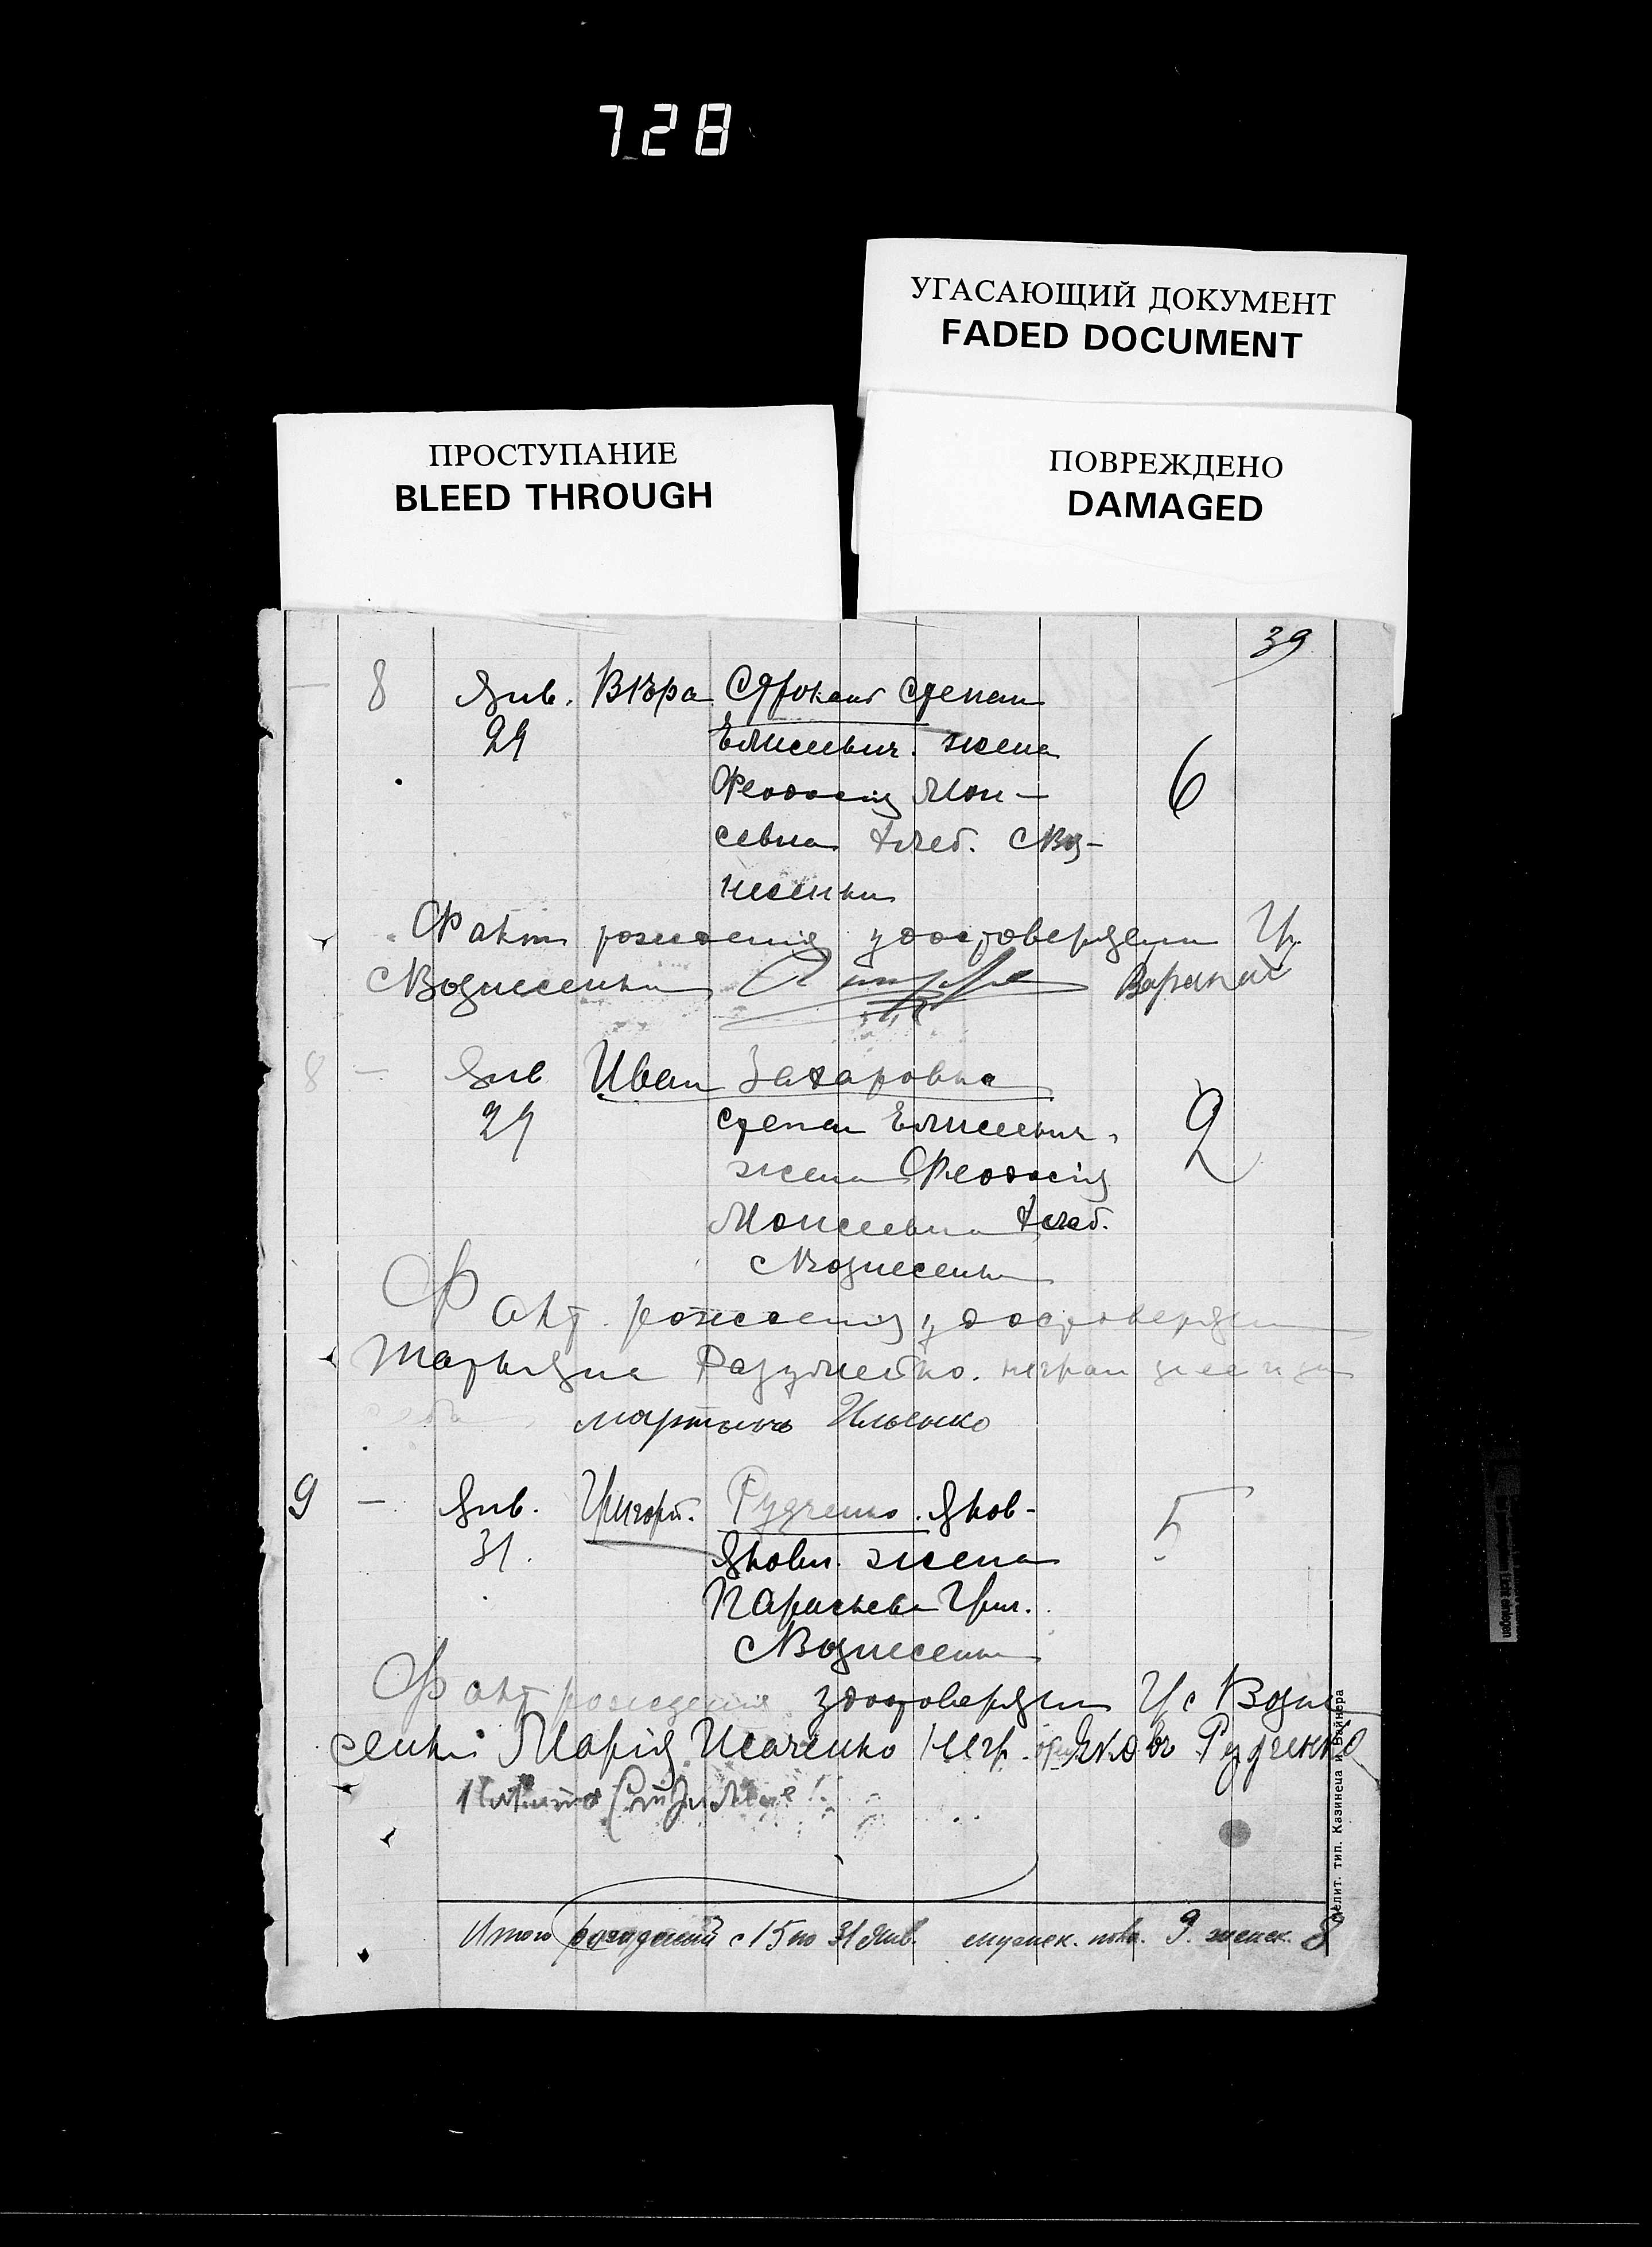 728
УГАСАЮЩИЙ ДОКУМЕНТ
FADED DOCUMENT
ПРОСТУПАНИЕ
BLEED THROUGH
ПОВРЕЖДЕНО
DAMAGED
39
— 8 Янв. Вѣра Степан
29 Елисеевич. жена
Феодосія Мои-
6
севна хлеб. с Воз-
несенки
Факт рождения удостоверяем Гр.
с Вознесенки
8 — Янв Иван Захаровка
29 степан Елисеевич.
2
жена Феодосія
Моисеевна хлеб.
с Вознесенки
Факт рождения удостоверяем
Марьяна Разумейко. неграм
мартынъ Ильенко
9 — Янв. Григорі. Рудченко. Яков-
31. Якови. жена
5
Парасъева Григ.
с Вознесенки
Факт рождения удостоверяем Гр с Возне
сенки Марія Исаченко негр. Яковъ Рудченко
Итого рождений с 15 по 31 Янв. мужск. пола. 9. женск. 8
лит. тип. Казинеца и Вайнера